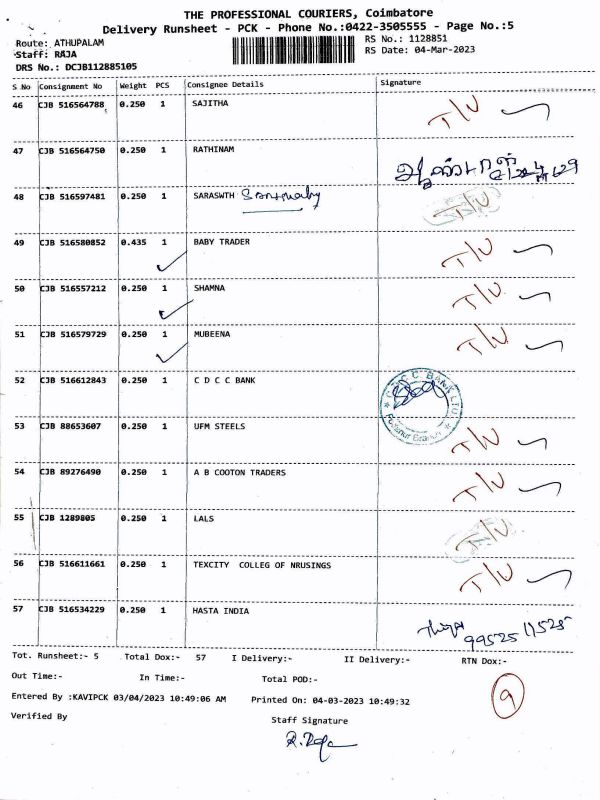 THE PROFESSIONAL COURIERS, Coimbatore
Delivery Runsheet - PCK - Phone No.:0422-3505555 - Page No.:5
Route: ATHUPALAM RS No.: 1128851
Staff: RAJA RS Date: 04-Mar-2023
DRS No.: DCJB112885105
S No Consignment No Weight PCS Consignee Details Signature
46 CJB 516564788 0.250 1 SAJITHA T/U
47 CJB 516564750 0.250 1 RATHINAM
48 CJB 516597481 0.250 1 SARASWTH T/U
49 CJB 516580852 0.435 1 BABY TRADER T/U
50 CJB 516557212 0.250 1 SHAMNA T/U
51 CJB 516579729 0.250 1 MUBEENA T/U
52 CJB 516612843 0.250 1 C D C C BANK
53 CJB 88653607 0.250 1 UFM STEELS T/U
54 CJB 89276490 0.250 1 A B COOTON TRADERS T/U
55 CJB 1289805 0.250 1 LALS T/U
56 CJB 516611661 0.250 1 TEXCITY COLLEG OF NRUSINGS T/U
57 CJB 516534229 0.250 1 HASTA INDIA
99525 11525
Tot. Runsheet:- 5 Total Dox:- 57 I Delivery:- II Delivery:- RTN Dox:-
Out Time:- In Time:- Total POD:-
9
Entered By :KAVIPCK 03/04/2023 10:49:06 AM Printed On: 04-03-2023 10:49:32
Verified By Staff Signature